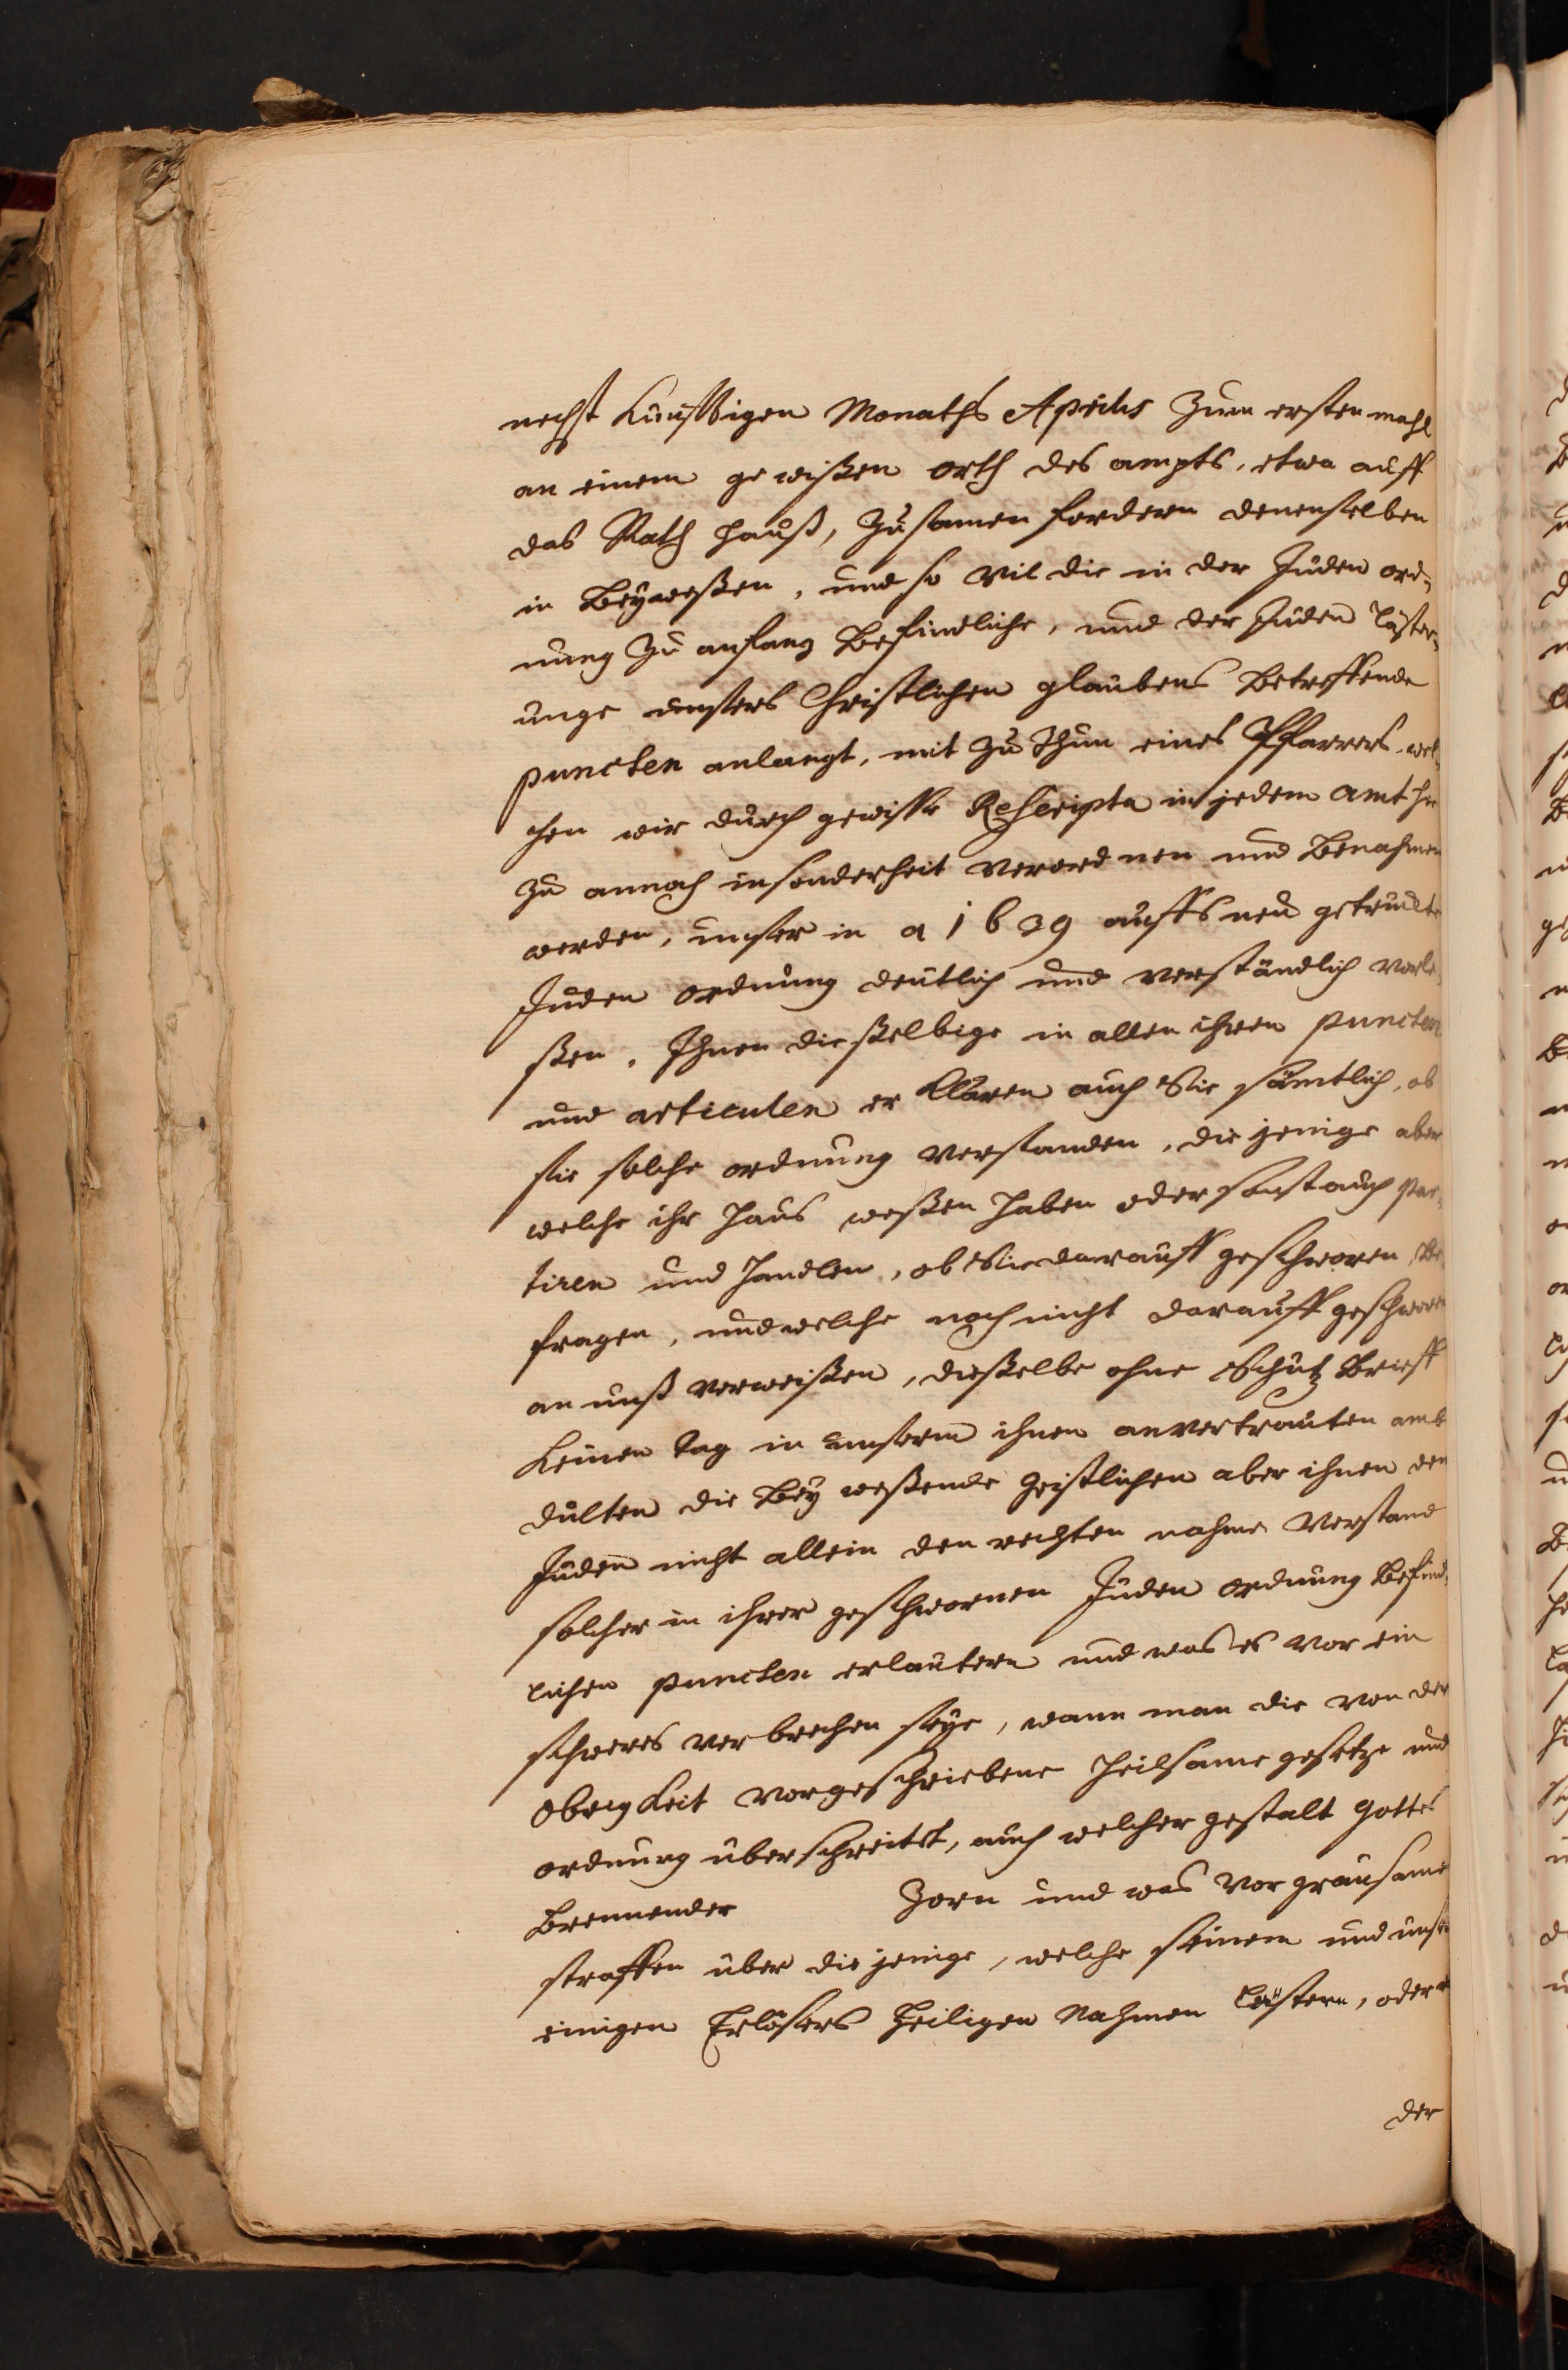 nechst künfftigen Monaths Aprilis zum ersten mahl
an einem gewißen orth des ampts, etwa auff
das Rath hauß, zusamen fordern denenselben
in Beyweßen, und so vil die in der Juden ord-
nung zu anfang befindliche, und der Juden läster-
unge unsers Christlichen glaubens betreffende
puncten anlangt, mit zu Thun eines Pfarrers wel-
chen wir durch gewisse Rescripta in jedem amt hie
zu annoch insonderheit verordnen und benahmen
werden, unser in a 1639 auffs neu getruckte
Juden ordnung deutlich und verständlich vorle-
ßen, Ihnen dießelbige in allen ihren puncten
und articulen er klären auch Sie sämtlich, ob
sie solche ordnung verstanden, die jenige aber
welche ihr haus weßen haben oder sonst auch par-
tiren und handlen, ob Sie darauff geschworen be-
fragen, und welche noch nicht darauff geschworen
an unß verweißen, dießelbe ohne Schutz Brieff
keinen tag in unserm ihnen anvertrauten ambt
dulten die bey weßende geistlichen aber ihnen den
Juden nicht allein den rechten nahme verstand
solcher in ihrer geschwornen Juden ordnung befind-
lichen puncten erlautern und was es vor ein
schweres verbrechen seye, wann man die von der
obrigkeit vorgeschriebene heilsame gesetze und
ordnung überschreitet, auch welcher gestalt Gottes
brennender Zorn und was vor grausame
straffen über die jenige, welche seinen und unsers
einigen Erlösers heiligen Nahmen lästern, oder
der